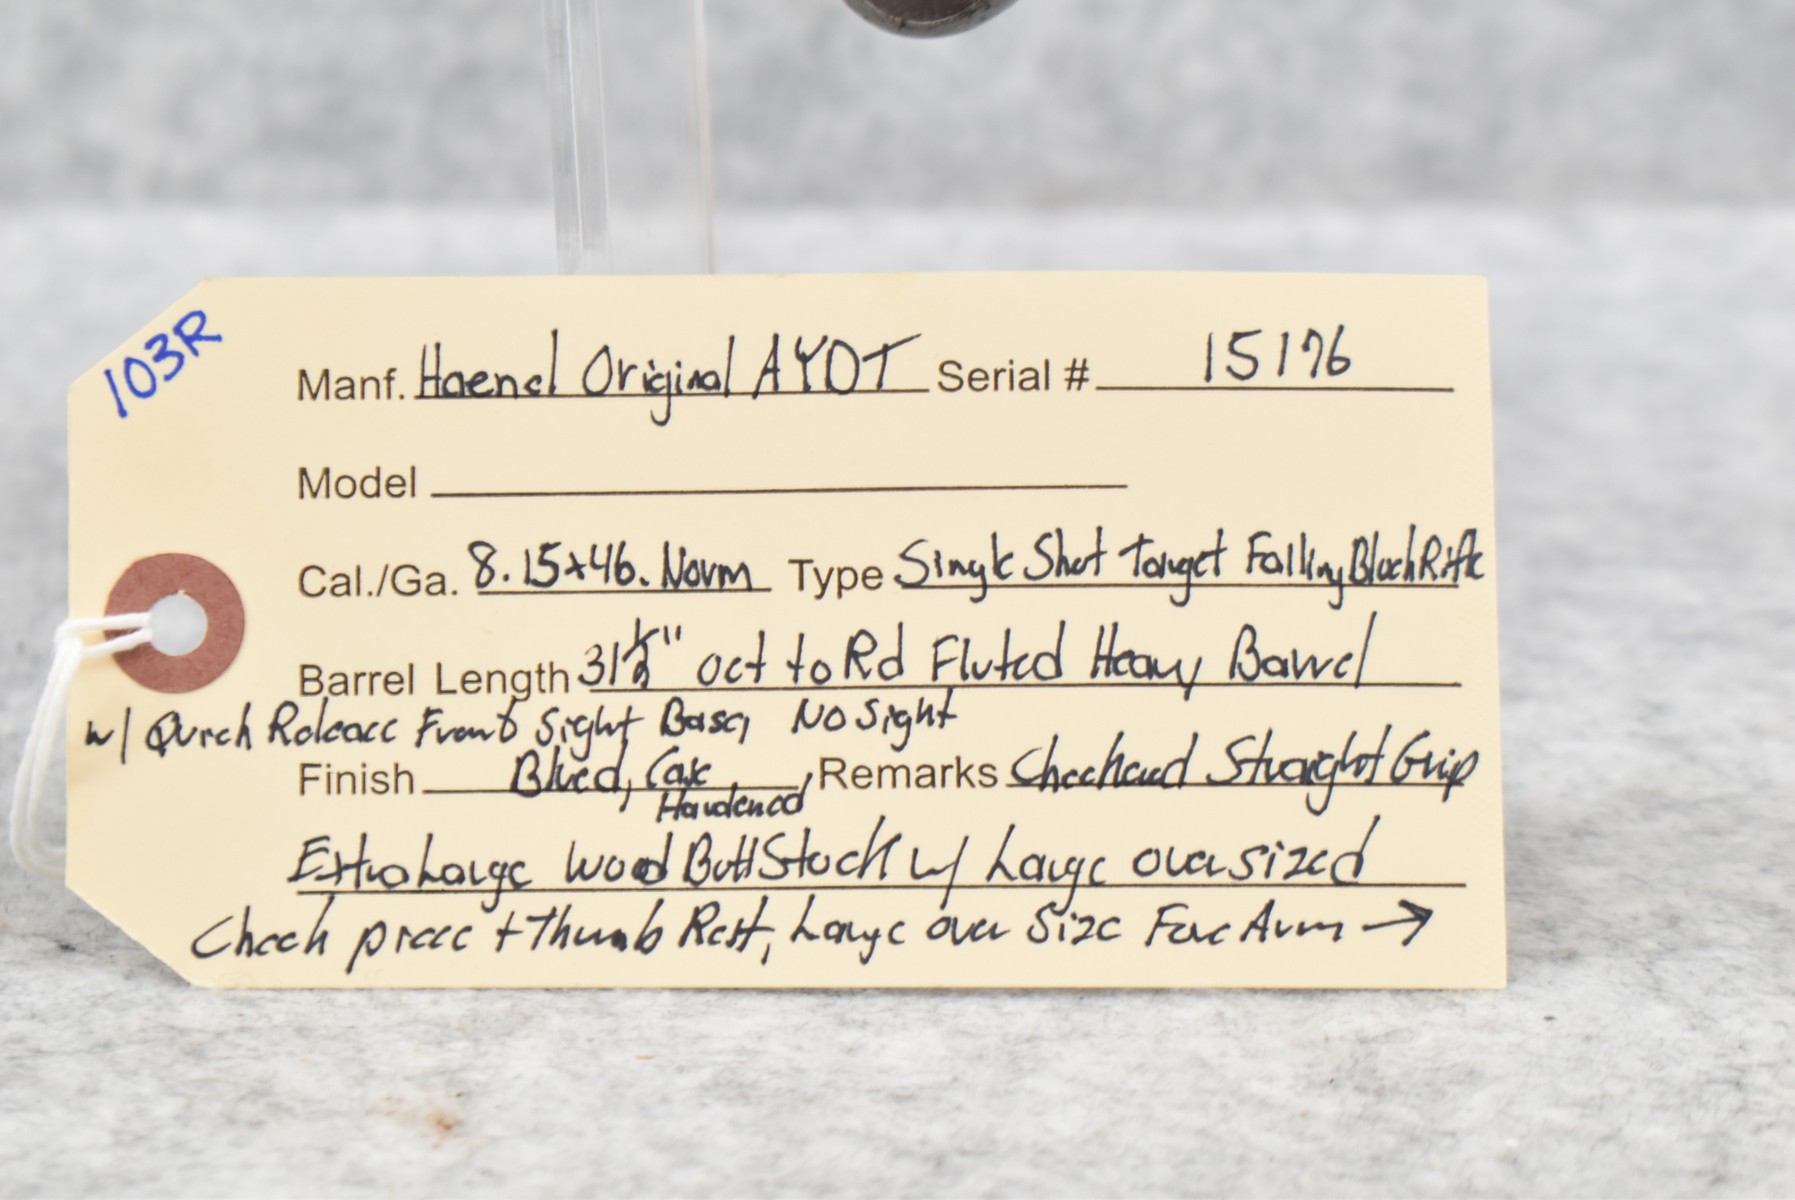 103R
Manf. Haenel Original AYDT Serial # 15176
Model
Cal./Ga. 8.15x46. Norm Type Single Shot Target Falling Block Rifle
Barrel Length 31 1/2" oct to Rd Fluted Heavy Barrel
w/ Quick Release Front Sight Base, No Sight
Finish Blued, Case Hardened, Remarks Checkered Straight Grip
Extra Large Wood Butt Stock w/ Large oversized
Cheek piece + Thumb Rest, Large over Size Fore Arm →